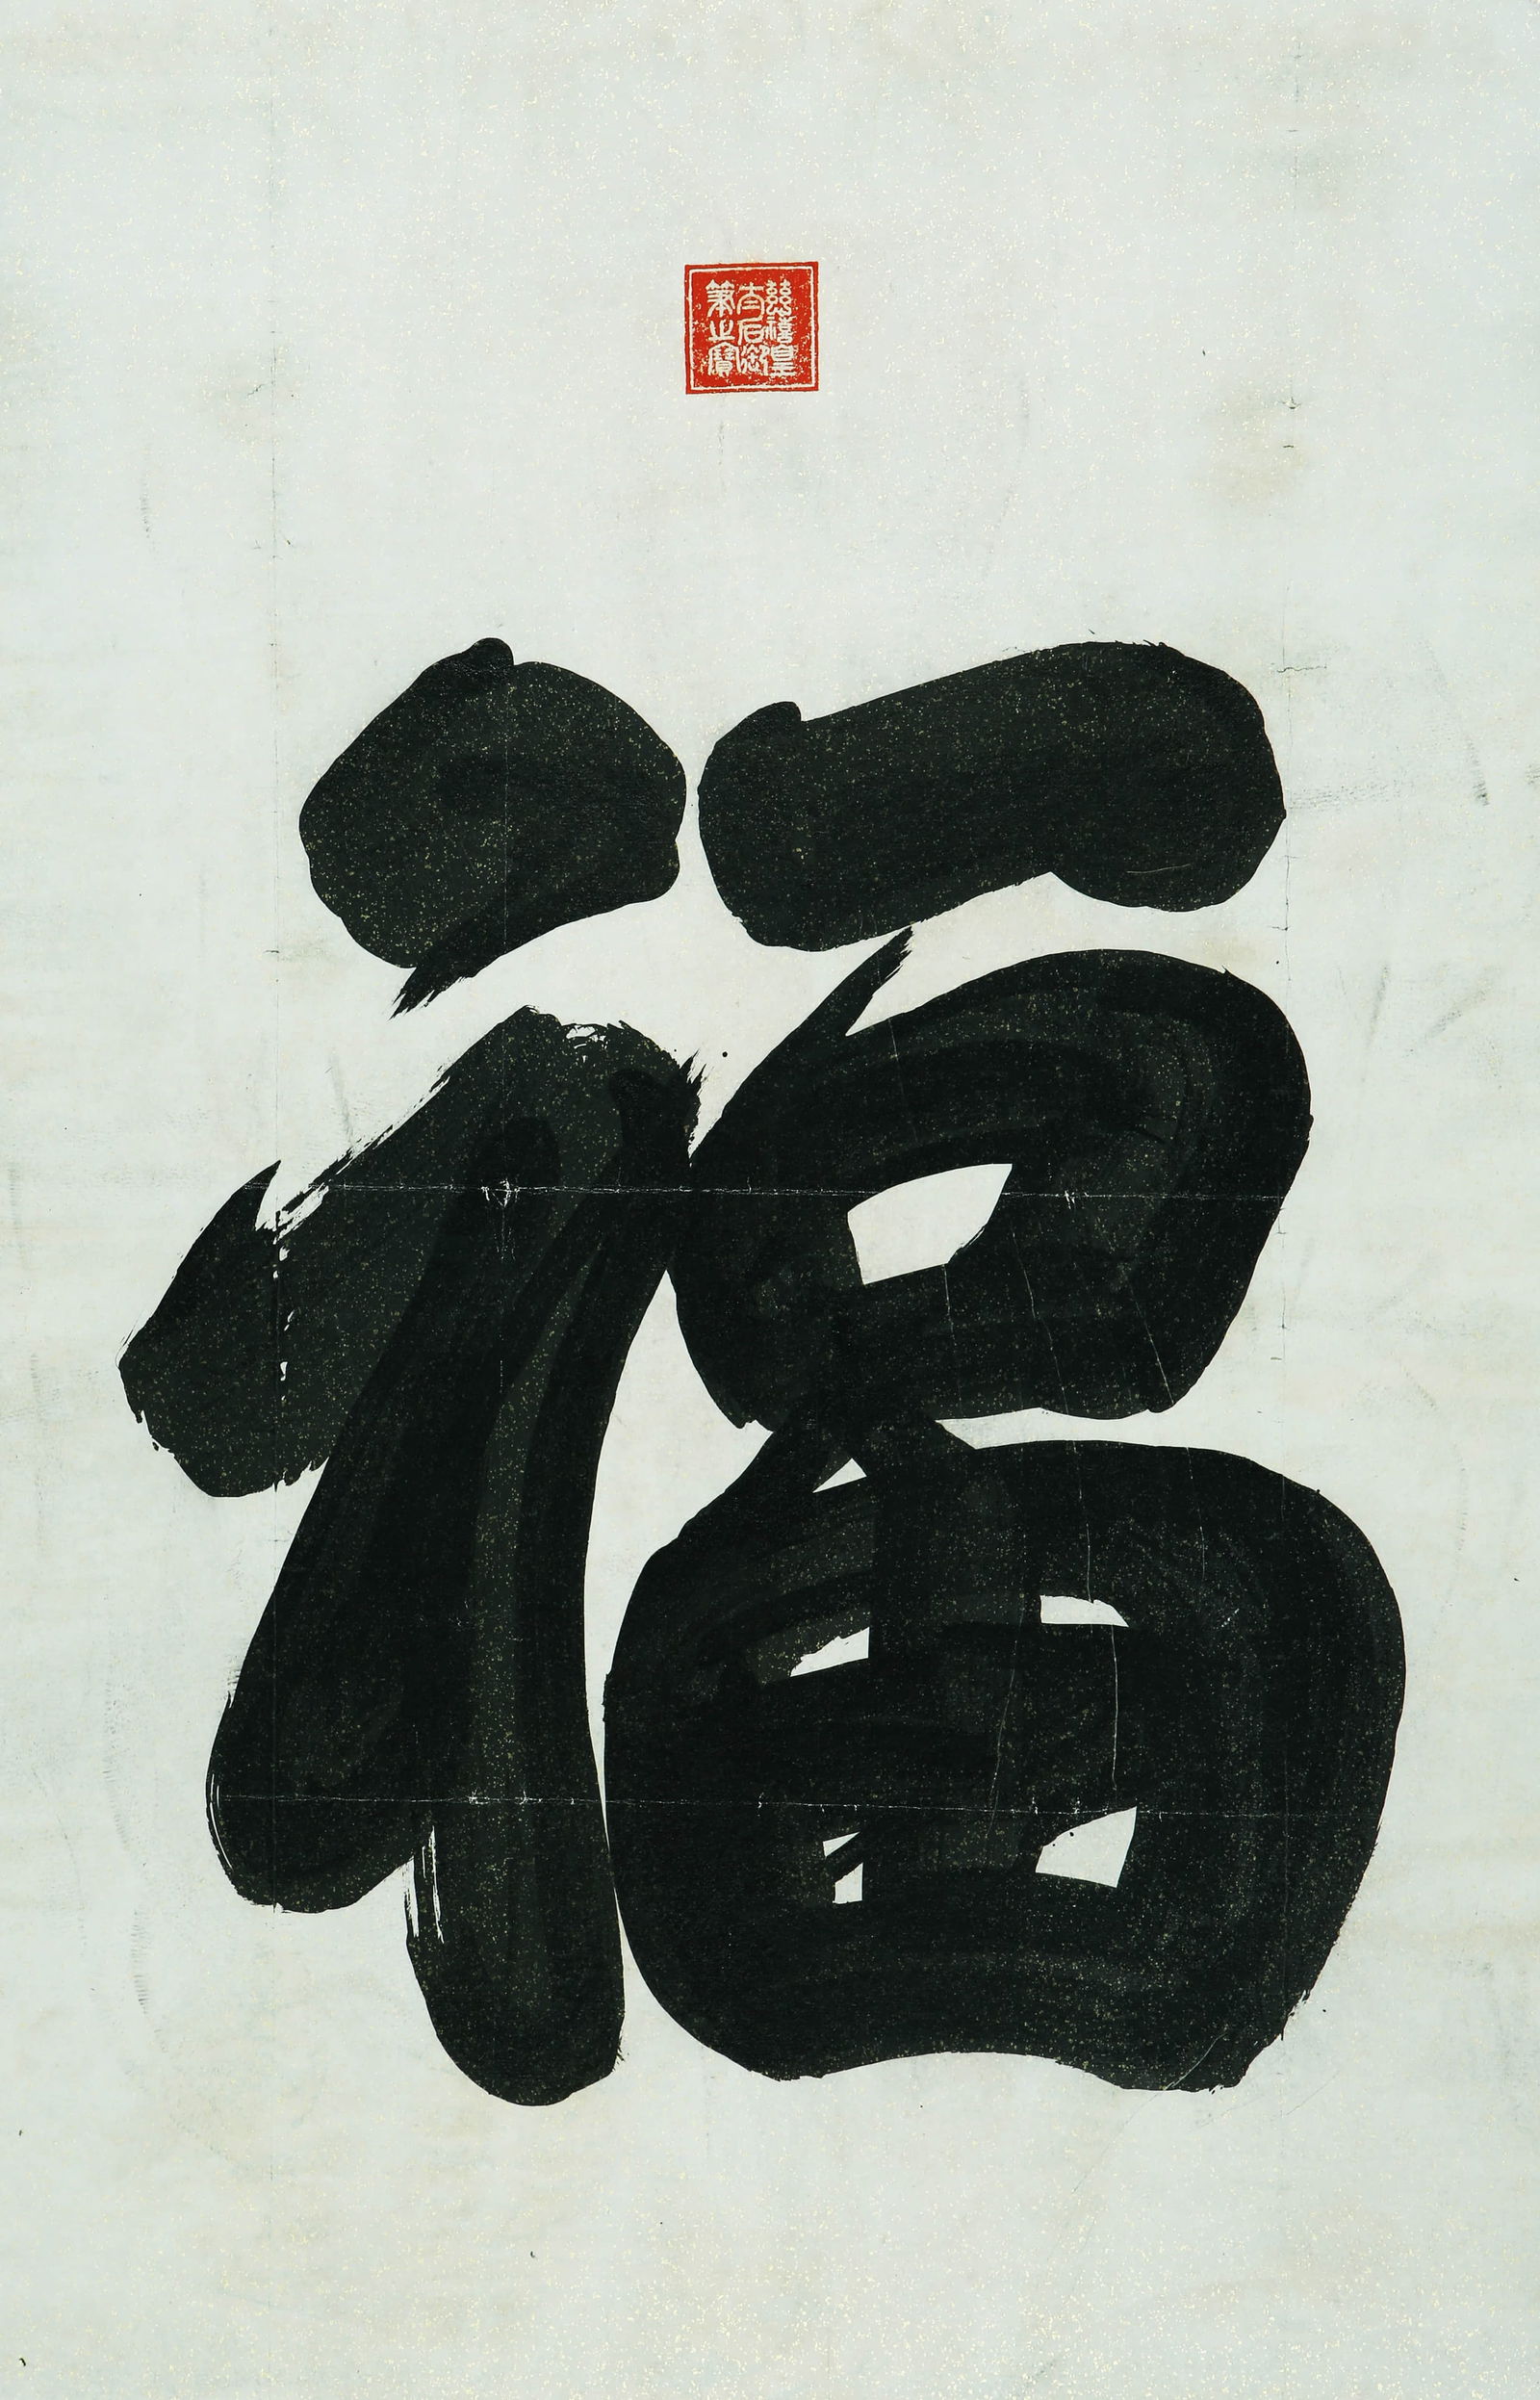 慈禧皇
太后御
筆之寶
福